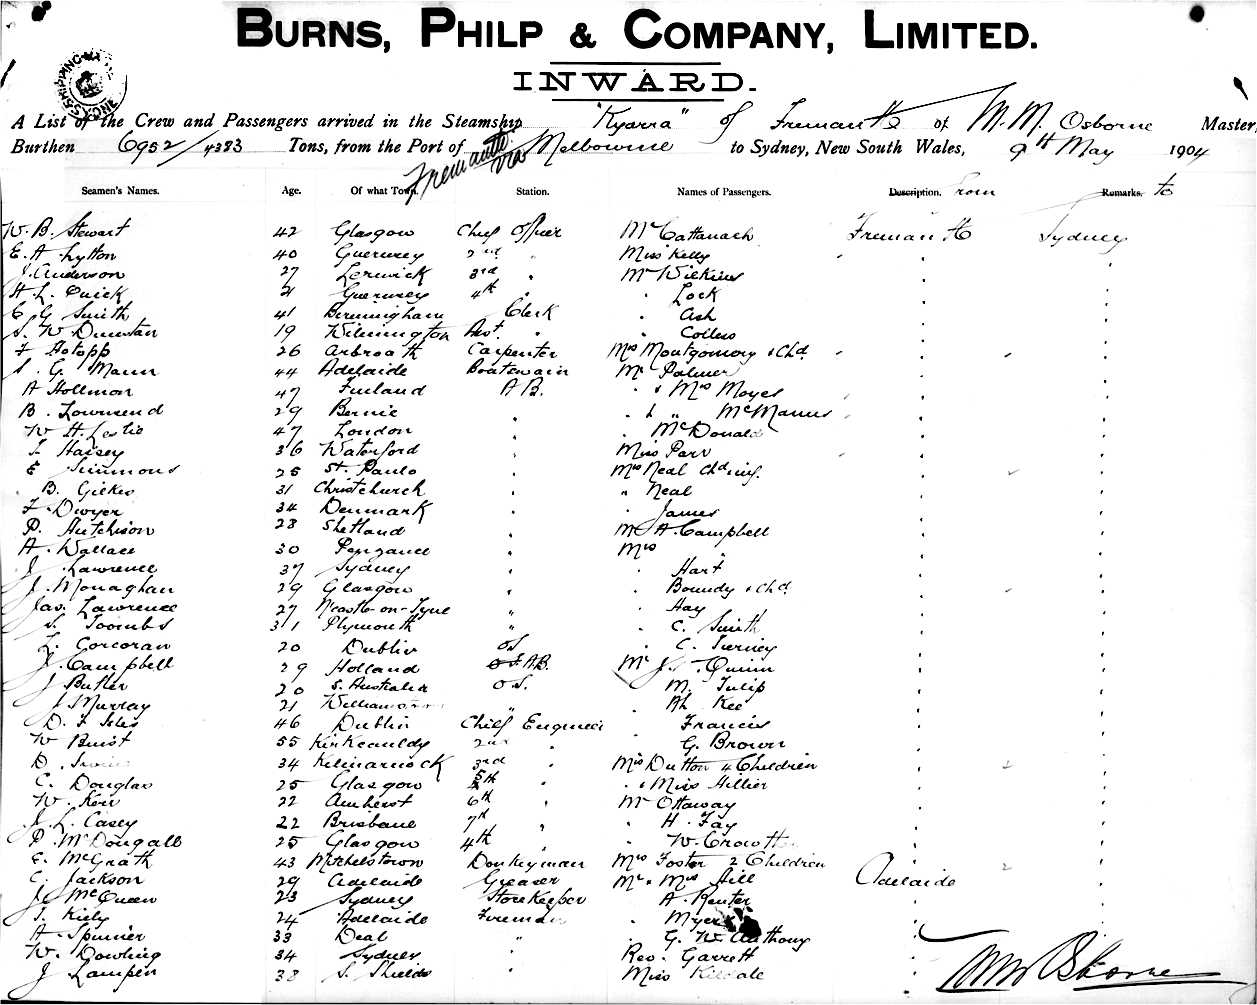 BURNS, PHILP & COMPANY, LIMITED.
INWARD.
A List of the Crew and Passengers arrived in the Steamship "Kyarra" of Fremantle of M. M. Osborne Master,
Burthen 6952/4383 Tons, from the Port of Fremantle via Melbourne to Sydney, New South Wales, 9th May 1904
Seamen's Names. Age. Of what Town. Station. Names of Passengers. Description. From Remarks. to
W. B. Stewart 42 Glasgow Chief Officer Mr Cattanach Fremantle Sydney
E. A. Lytton 40 Guernsey 2nd " Miss Kelly
J. Anderson 27 Lerwick 3rd " Mr Wilkins
H. L. Quick 21 Guernsey 4th " " Lock
C G Smith 41 Birmingham Clerk " Ash
S. W. Dunstan 19 Wilmington Asst. " "
F Hotopp 26 Arbroath Carpenter Mrs Montgomery & Chd.
S. G. Mann 44 Adelaide Boatswain Mr Palmer
A Hollmon 47 Finland A B. " & Mrs Moyes
B. 29 " " & " McManus
W H. Leslie 47 London " " McDonald
J. Haisey 36 Waterford " Miss Parr
E Simmons 25 St. Paulo " Mrs Neal Chd inf.
B. Gilkes 31 Christchurch " " Neal
F. Dwyer 34 Denmark " " James
P. Hutchison 28 Shetland " Mr A. Campbell
A. Wallace 30 Penzance " Mrs "
J Lawrence 37 Sydney " " Hart
J. Monaghan 29 Glasgow " " Boundy & Chd.
Jas. Lawrence 27 N'castle-on-Tyne " " Hay
S. Toombs 31 Plymouth " " C. Smith
L. Corcoran 20 Dublin OS " C. Tierney
J. Campbell 29 Holland A.B. Mr J. T. Quinn
J Butler 20 S. Australia O S. " M. Tulip
J Murray 21 " " Ah Kee
D. F Isles 46 Dublin Chief Engineer " Francis
W Buist 55 Kirkcauldy 2nd " " G. Brown
D. 34 Kilmarnock 3rd " Mrs Dutton 4 Children
C. Douglas 25 Glasgow 5th " " & Miss Hillier
W. Keir 22 Amherst 6th " Mr Ottaway
J. L. Casey 22 Brisbane 7th " " H. Fay
P. McDougall 25 Glasgow 4th " " W. Crowther
E. McGrath 43 Mitchelstown Donkeyman Mrs Foster 2 Children
C. Jackson 29 Adelaide Greaser Mr & Mrs Hill Adelaide
J. McQueen 23 Sydney Storekeeper " A. Renter
T. Kiely 24 Adelaide Fireman " Myers
A. Spinner 33 Deal " " G. W. Anthony
W. Dowling 34 Sydney " Rev. Garrett
J Lampin 38 S. Shields " Miss
M M Osborne